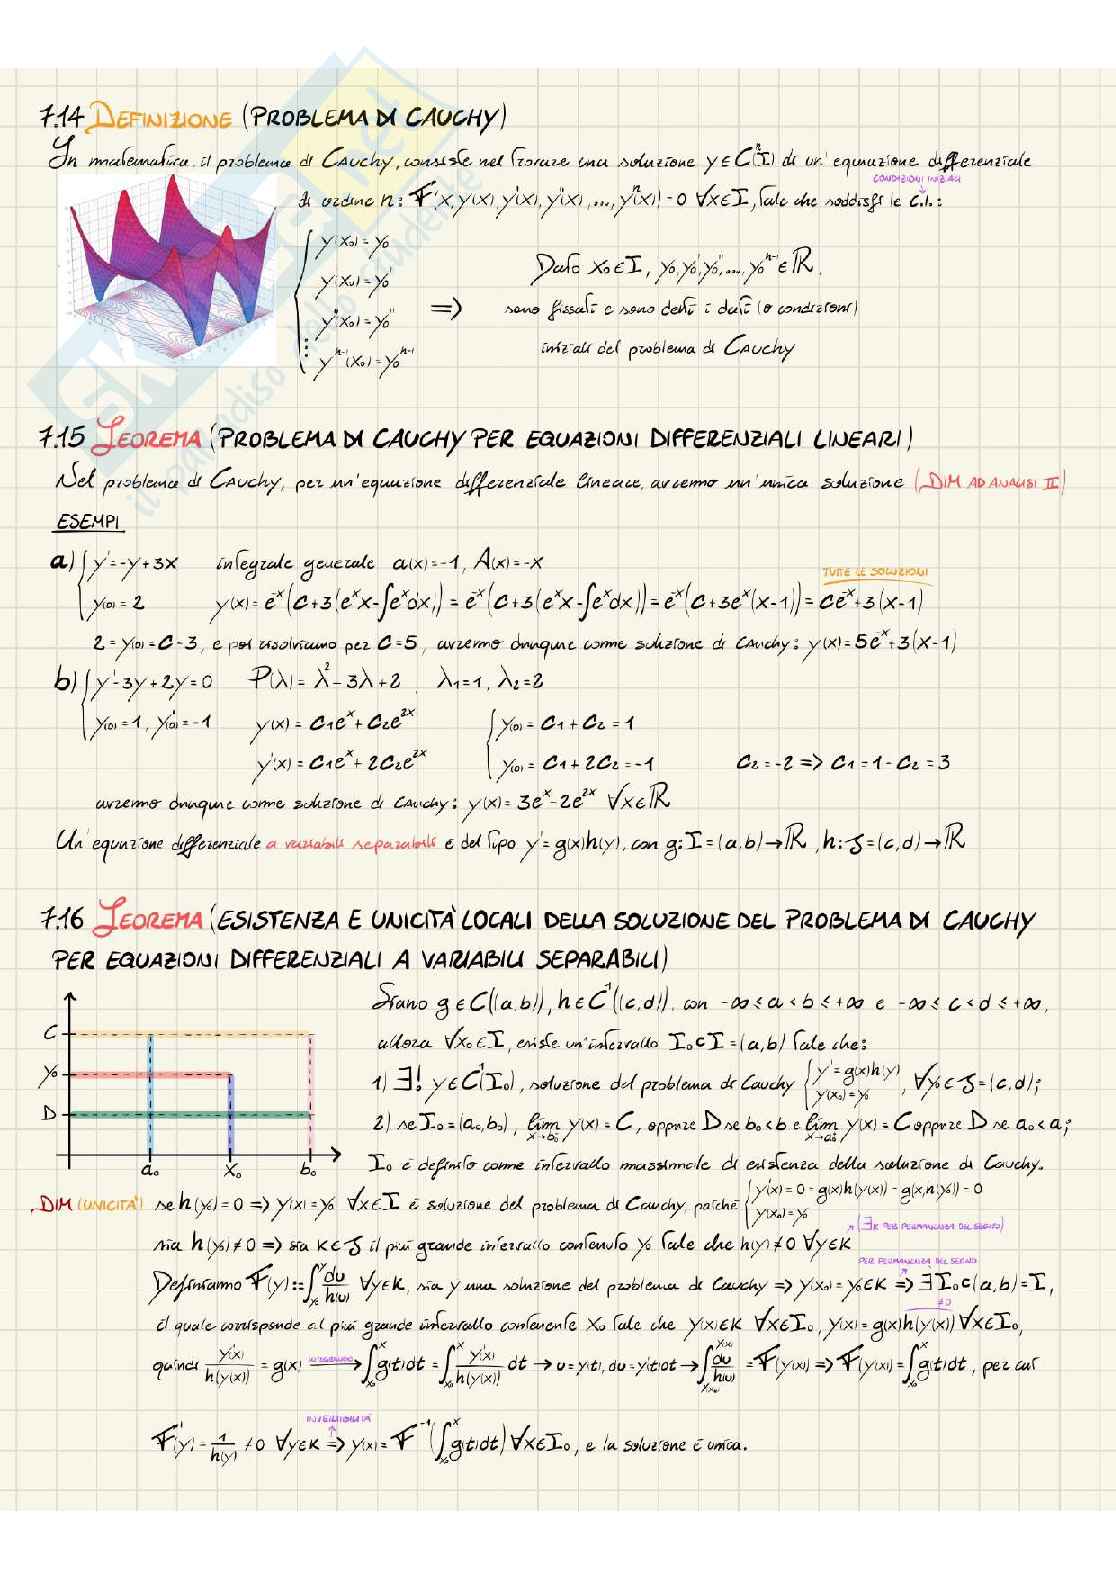 7.14 DEFINIZIONE (PROBLEMA DI CAUCHY)
In matematica, il problema di CAUCHY, consiste nel trovare una soluzione y∈Cⁿ(I) di un'equazione differenziale
CONDIZIONI INIZIALI
di ordine n: F(x, y(x), y'(x), y''(x), ..., yⁿ(x)) = 0 ∀x∈I, tale che soddisfi le C.I.:
y(x₀) = y₀
y'(x₀) = y₀'
y''(x₀) = y₀''
yⁿ⁻¹(x₀) = y₀ⁿ⁻¹
=> Dato x₀∈I, y₀, y₀', y₀'', ..., y₀ⁿ⁻¹∈ℝ,
sono fissati e sono detti i dati (o condizioni)
iniziali del problema di CAUCHY
7.15 TEOREMA (PROBLEMA DI CAUCHY PER EQUAZIONI DIFFERENZIALI LINEARI)
Nel problema di CAUCHY, per un'equazione differenziale lineare, avremo un'unica soluzione (DIM AD ANALISI II)
ESEMPI
a) { y' = -y + 3x integrale generale a(x) = -1, A(x) = -x
TUTTE LE SOLUZIONI
y(0) = 2 y(x) = e⁻ˣ(C+3(eˣx-∫eˣdx)) = e⁻ˣ(C+3(eˣx-∫eˣdx)) = e⁻ˣ(C+3eˣ(x-1)) = Ce⁻ˣ+3(x-1)
2 = y(0) = C-3, e poi risolviamo per C = 5, avremo dunque come soluzione di CAUCHY: y(x) = 5e⁻ˣ+3(x-1)
b) { y''-3y'+2y = 0 P(λ) = λ²-3λ+2, λ₁=1, λ₂=2
y(0) = 1, y'(0) = -1 y(x) = C₁eˣ + C₂e²ˣ { y(0) = C₁ + C₂ = 1
y'(x) = C₁eˣ + 2C₂e²ˣ y(0) = C₁ + 2C₂ = -1 C₂ = -2 => C₁ = 1 - C₂ = 3
avremo dunque come soluzione di CAUCHY: y(x) = 3eˣ-2e²ˣ ∀x∈ℝ
Un'equazione differenziale a variabili separabili è del tipo y' = g(x)h(y), con g: I = (a,b) → ℝ, h: J = (c,d) → ℝ
7.16 TEOREMA (ESISTENZA E UNICITÀ LOCALI DELLA SOLUZIONE DEL PROBLEMA DI CAUCHY
PER EQUAZIONI DIFFERENZIALI A VARIABILI SEPARABILI)
C
y₀
D
a₀ x₀ b₀
Siano g∈C((a,b)), h∈C¹((c,d)), con -∞ ≤ a < b ≤ +∞ e -∞ ≤ c < d ≤ +∞,
allora ∀x₀∈I, esiste un'intervallo I₀⊂I = (a,b) tale che:
1) ∃! y∈C¹(I₀), soluzione del problema di Cauchy { y' = g(x)h(y) y(x₀) = y₀, ∀y₀∈J = (c,d);
2) se I₀ = (a₀,b₀), lim x→b₀⁻ y(x) = C, oppure D se b₀<b e lim x→a₀⁺ y(x) = C oppure D se a₀<a;
I₀ è definito come intervallo massimale di esistenza della soluzione di Cauchy.
DIM (UNICITÀ) se h(y₀) = 0 => y(x) = y₀ ∀x∈I è soluzione del problema di Cauchy, poichè { y'(x) = 0 = g(x)h(y(x)) = g(x)h(y₀) = 0 y(x₀) = y₀
(∃K PER PERMANENZA DEL SEGNO)
sia h(y₀) ≠ 0 => sia K⊂J il più grande intervallo contenuto y₀ tale che h(y) ≠ 0 ∀y∈K
PER PERMANENZA DEL SEGNO
Definiamo F(y) := ∫ y₀ y du/h(u) ∀y∈K, sia y una soluzione del problema di Cauchy => y(x₀) = y₀∈K => ∃I₀⊂(a,b) = I,
≠0
il quale corrisponde al più grande intervallo contenente x₀ tale che y(x)∈K ∀x∈I₀, y'(x) = g(x)h(y(x)) ∀x∈I₀,
quindi y'(x)/h(y(x)) = g(x) INTEGRANDO → ∫ x₀ x g(t)dt = ∫ x₀ x y'(x)/h(y(x)) dt → u = y(t), du = y'(t)dt → ∫ y(x₀) y(x) du/h(u) = F(y(x)) => F(y(x)) = ∫ x₀ x g(t)dt, per cui
INVERTIBILITÀ
F'(y) = 1/h(y) ≠ 0 ∀y∈K => y(x) = F⁻¹(∫ x₀ x g(t)dt) ∀x∈I₀, e la soluzione è unica.